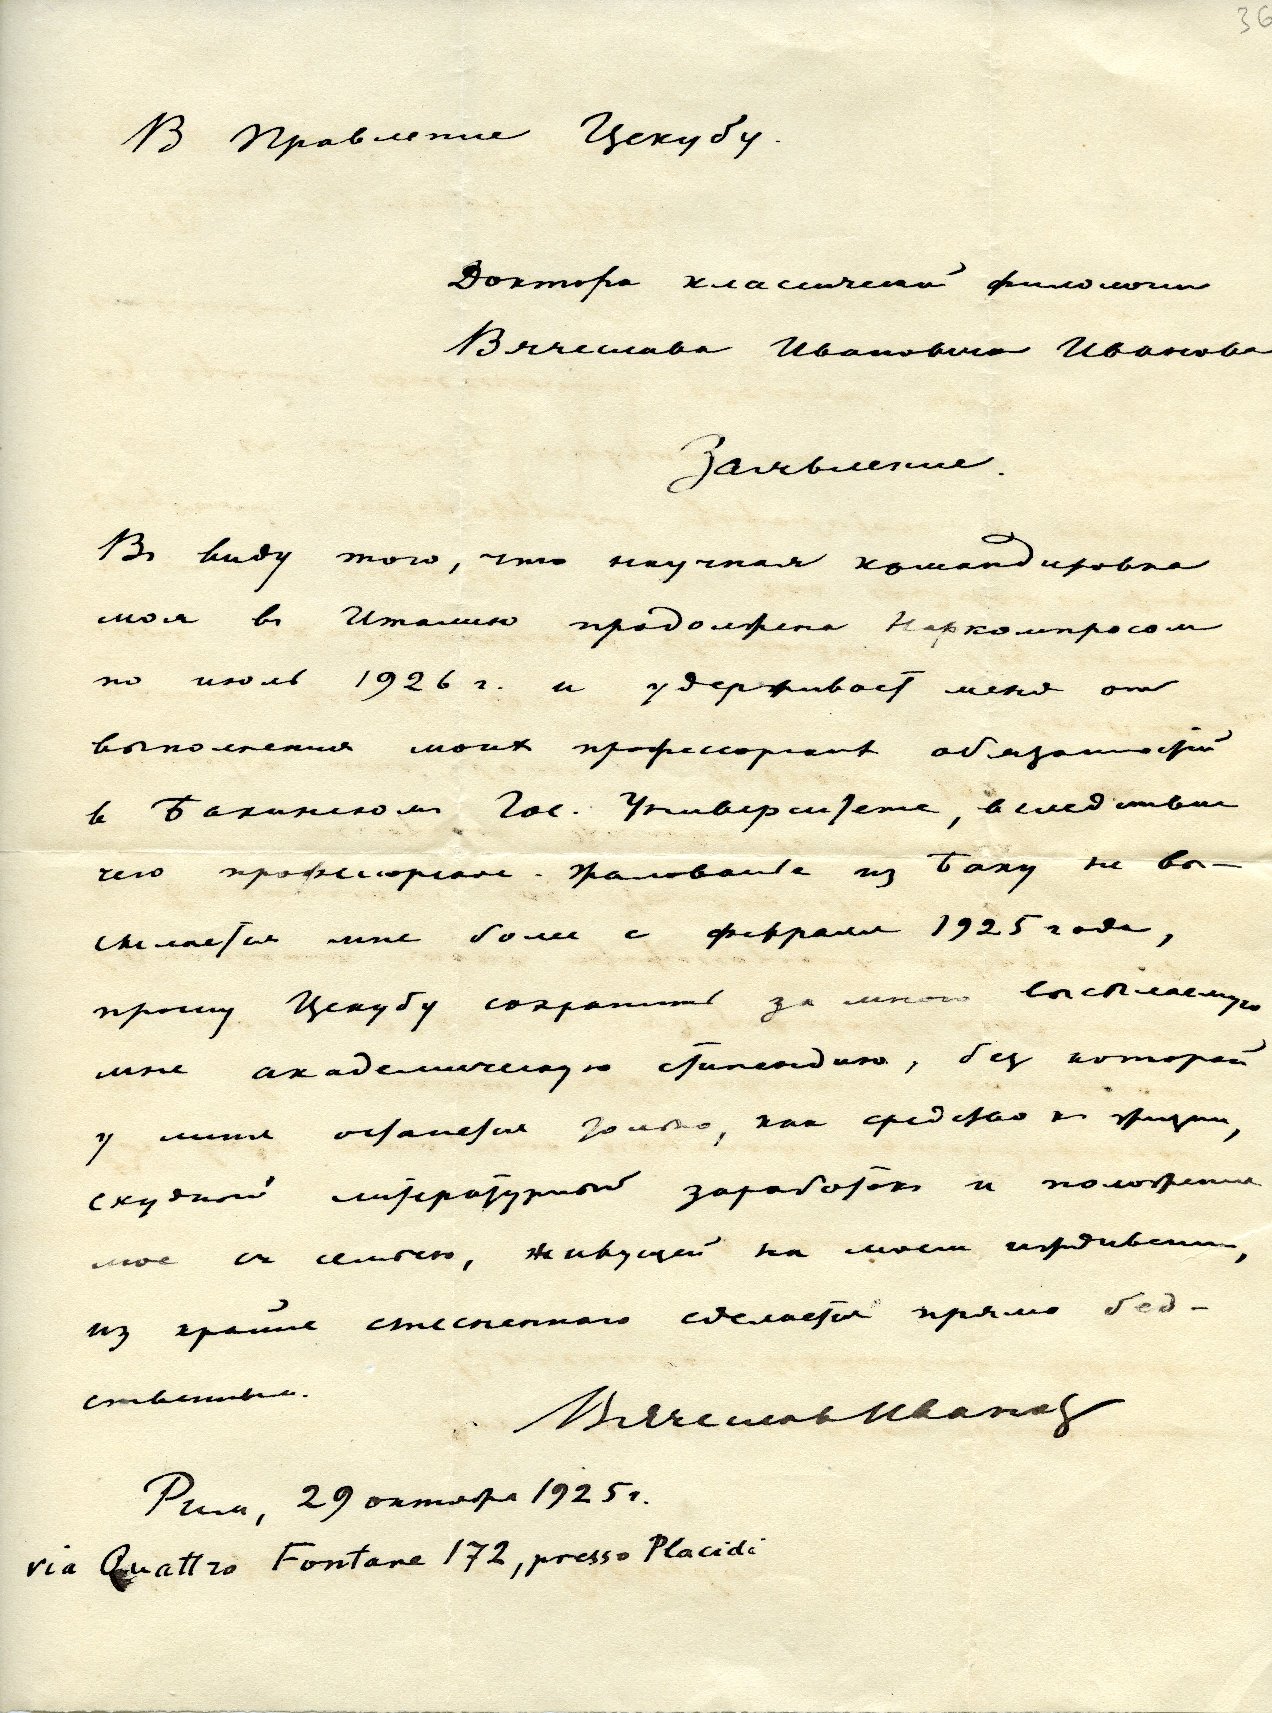 36
В Правление Цекубу.
Доктора классической филологии
Вячеслава Ивановича Иванова
Заявление.
В виду того, что научная командировка
моя в Италию продолжена Наркомпросом
по июль 1926 г. и удерживает меня от
выполнения моих профессорских обязанностей
в Бакинском Гос. Университете, вследствие
чего профессорское жалованье из Баку не вы-
сылается мне более с февраля 1925 года,
прошу Цекубу сохранить за мною высылаемую
мне академическую стипендию, без которой
у меня останется только, как средство к жизни,
скудный литературный заработок и положение
мое с семьею, живущей на моем иждивении,
из крайне стесненного сделается прямо бед-
ственным.
Вячеслав Иванов
Рим, 29 октября 1925 г.
via Quattro Fontane 172, presso Placidi